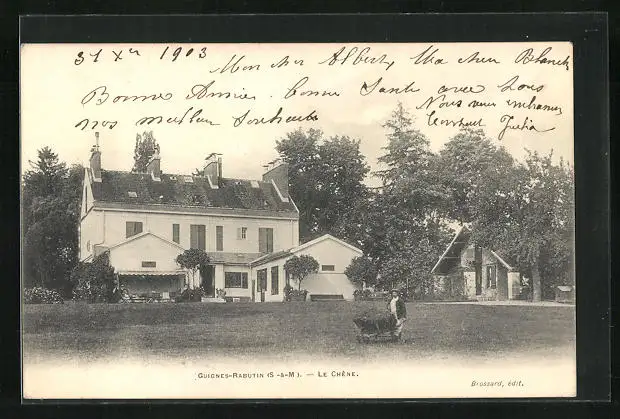 31 Xre 1903
Mon cher Albert, Ma cher Blanche
Bonne Année. bonne Santé avec tous
nos meilleur Souhaits
Nous vous embrassons
Julia
GUIGNES-RABUTIN (S-&-M). — LE CHÊNE.
Brossard, édit.